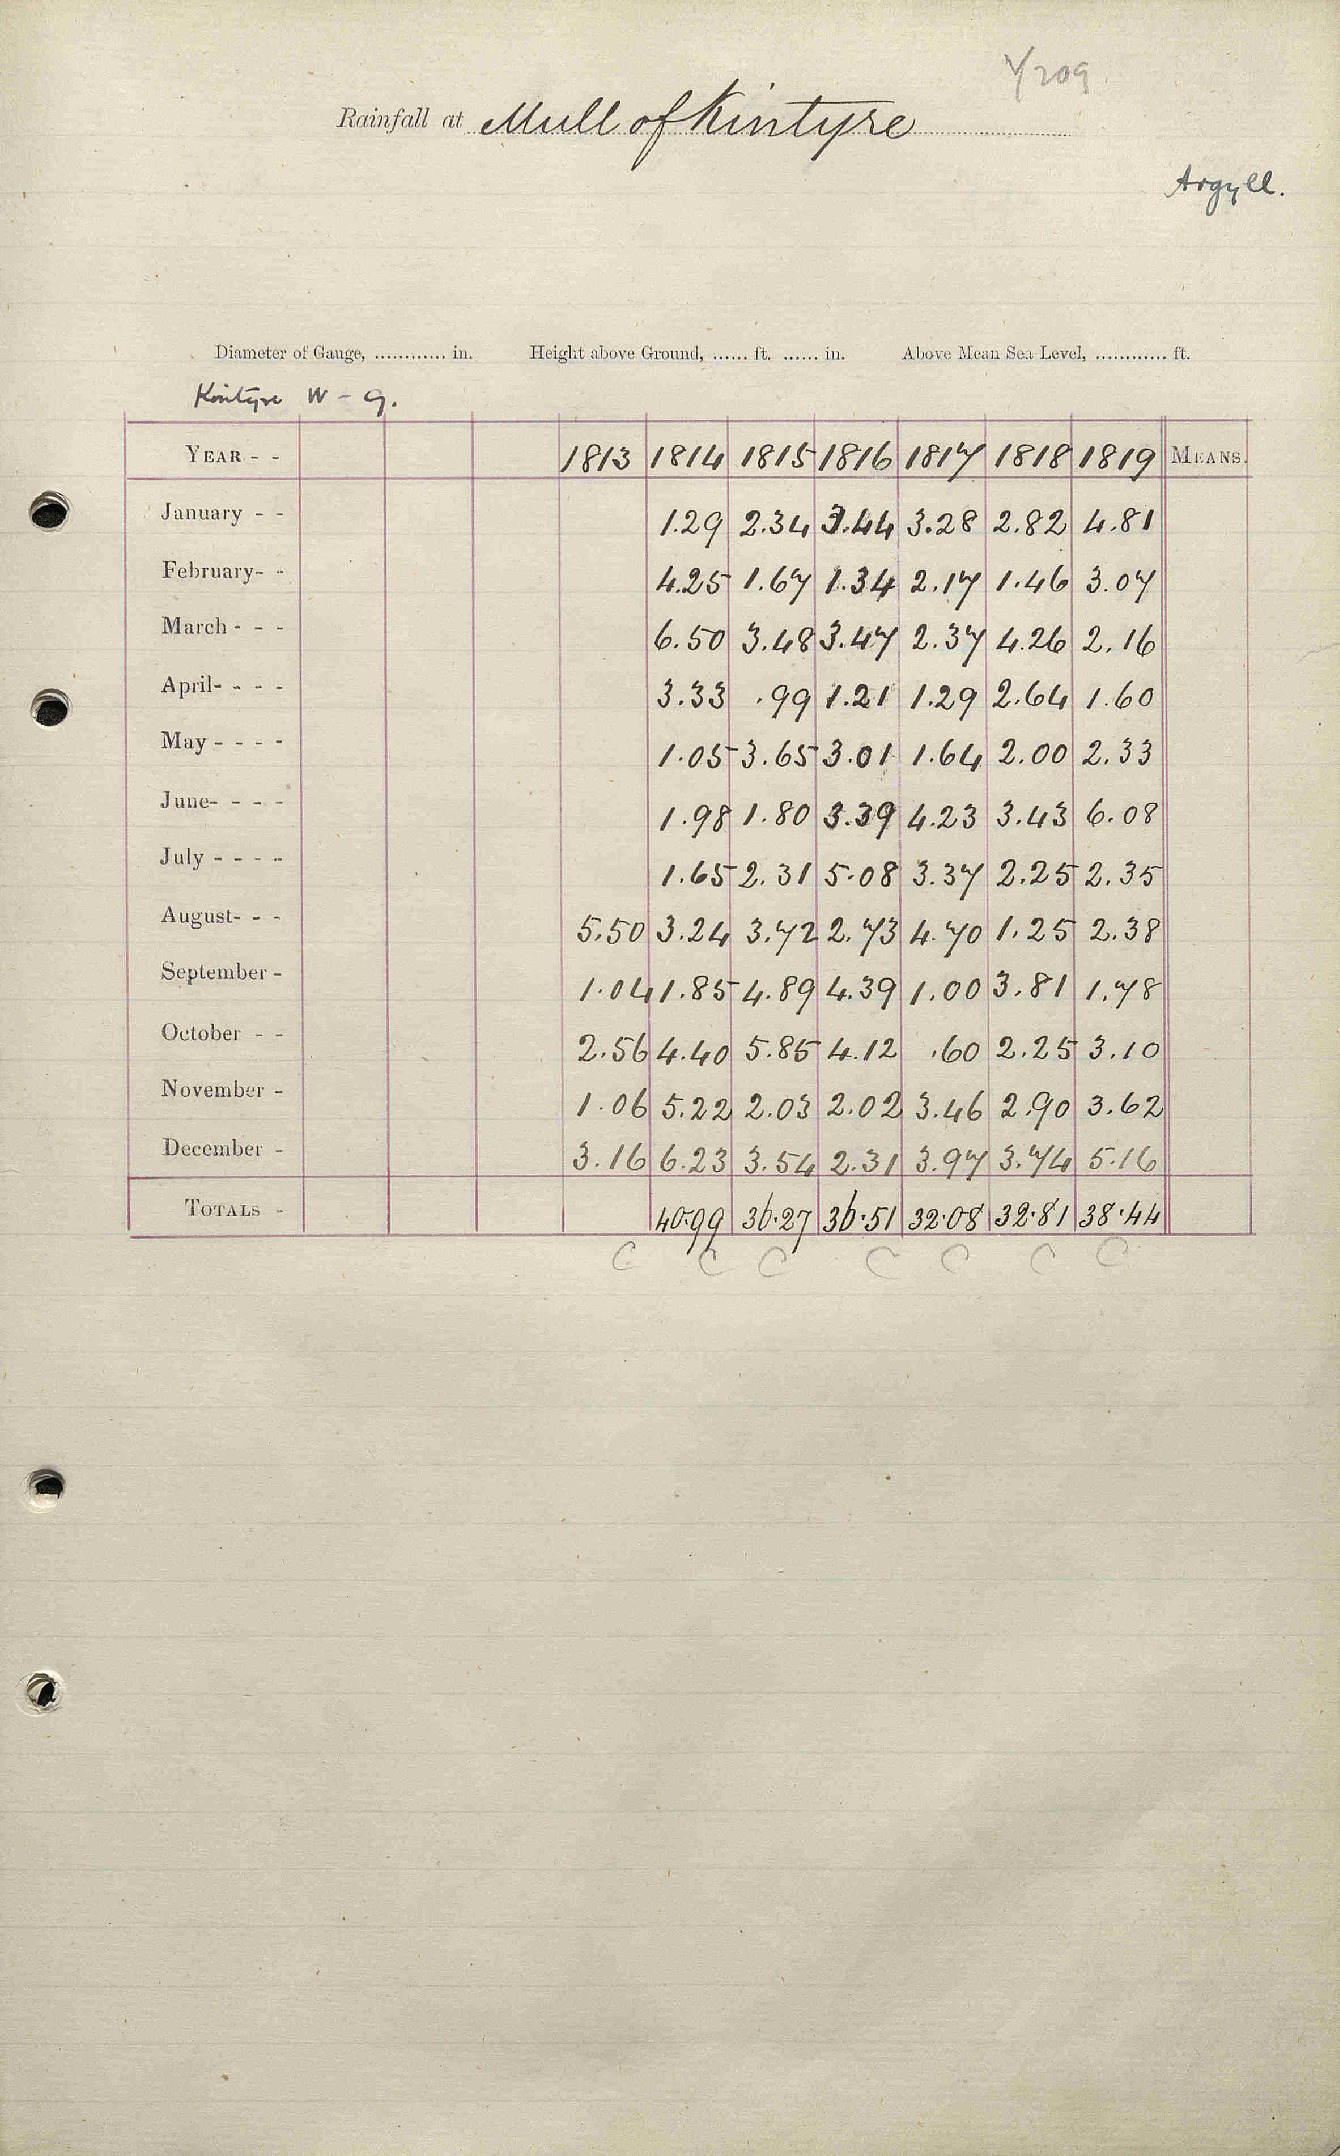 Y/209
Rainfall at Mull of Kintyre
Argyll.
Diameter of Gauge, ............ in. Height above Ground, ...... ft. ...... in. Above Mean Sea Level, ............ ft.
Kintyre W - g.
YEAR - - 1813 1814 1815 1816 1817 1818 1819 MEANS.
January - - 1.29 2.34 3.44 3.28 2.82 4.81
February- - 4.25 1.67 1.34 2.17 1.46 3.07
March - - - 6.50 3.48 3.47 2.37 4.26 2.16
April- - - - 3.33 .99 1.21 1.29 2.64 1.60
May - - - - 1.05 3.65 3.01 1.64 2.00 2.33
June- - - - 1.98 1.80 3.39 4.23 3.43 6.08
July - - - - 1.65 2.31 5.08 3.37 2.25 2.35
August- - - 5.50 3.24 3.72 2.73 4.70 1.25 2.38
September - 1.04 1.85 4.89 4.39 1.00 3.81 1.78
October - - 2.56 4.40 5.85 4.12 .60 2.25 3.10
November - 1.06 5.22 2.03 2.02 3.46 2.90 3.62
December - 3.16 6.23 3.54 2.31 3.97 3.74 5.16
TOTALS - 40.99 36.27 36.51 32.08 32.81 38.44
C C C C C C C